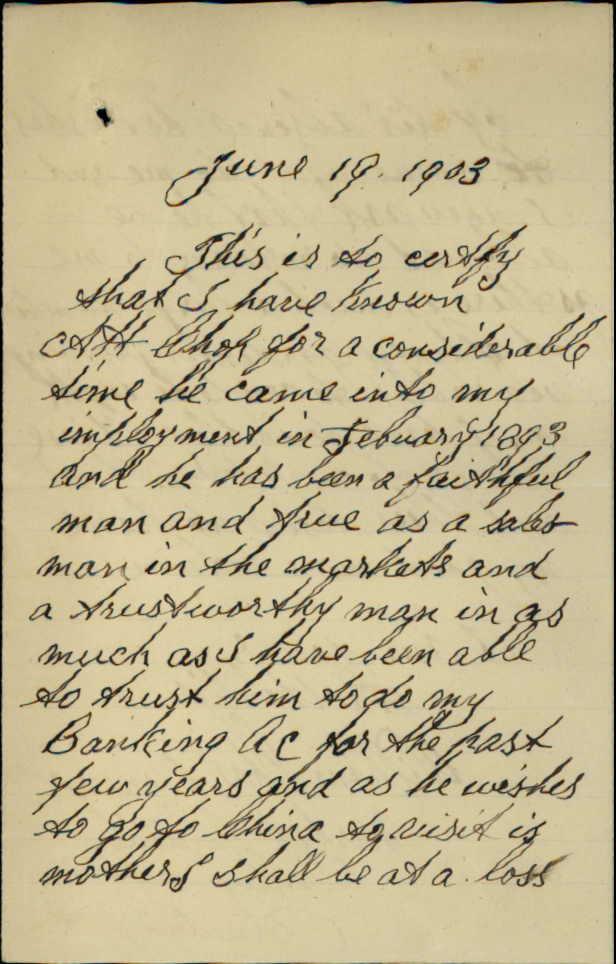 June 19. 1903
This is to certify
that I have known
Ah Chok for a considerable
time he came into my
employment in Febuary 1893
and he has been a faithful
man and true as a sales
man in the markets and
a trustworthy man in as
much as I have been able
to trust him to do my
Banking Ac for the past
few years and as he wishes
to go to China to visit is
mother I shall be at a loss